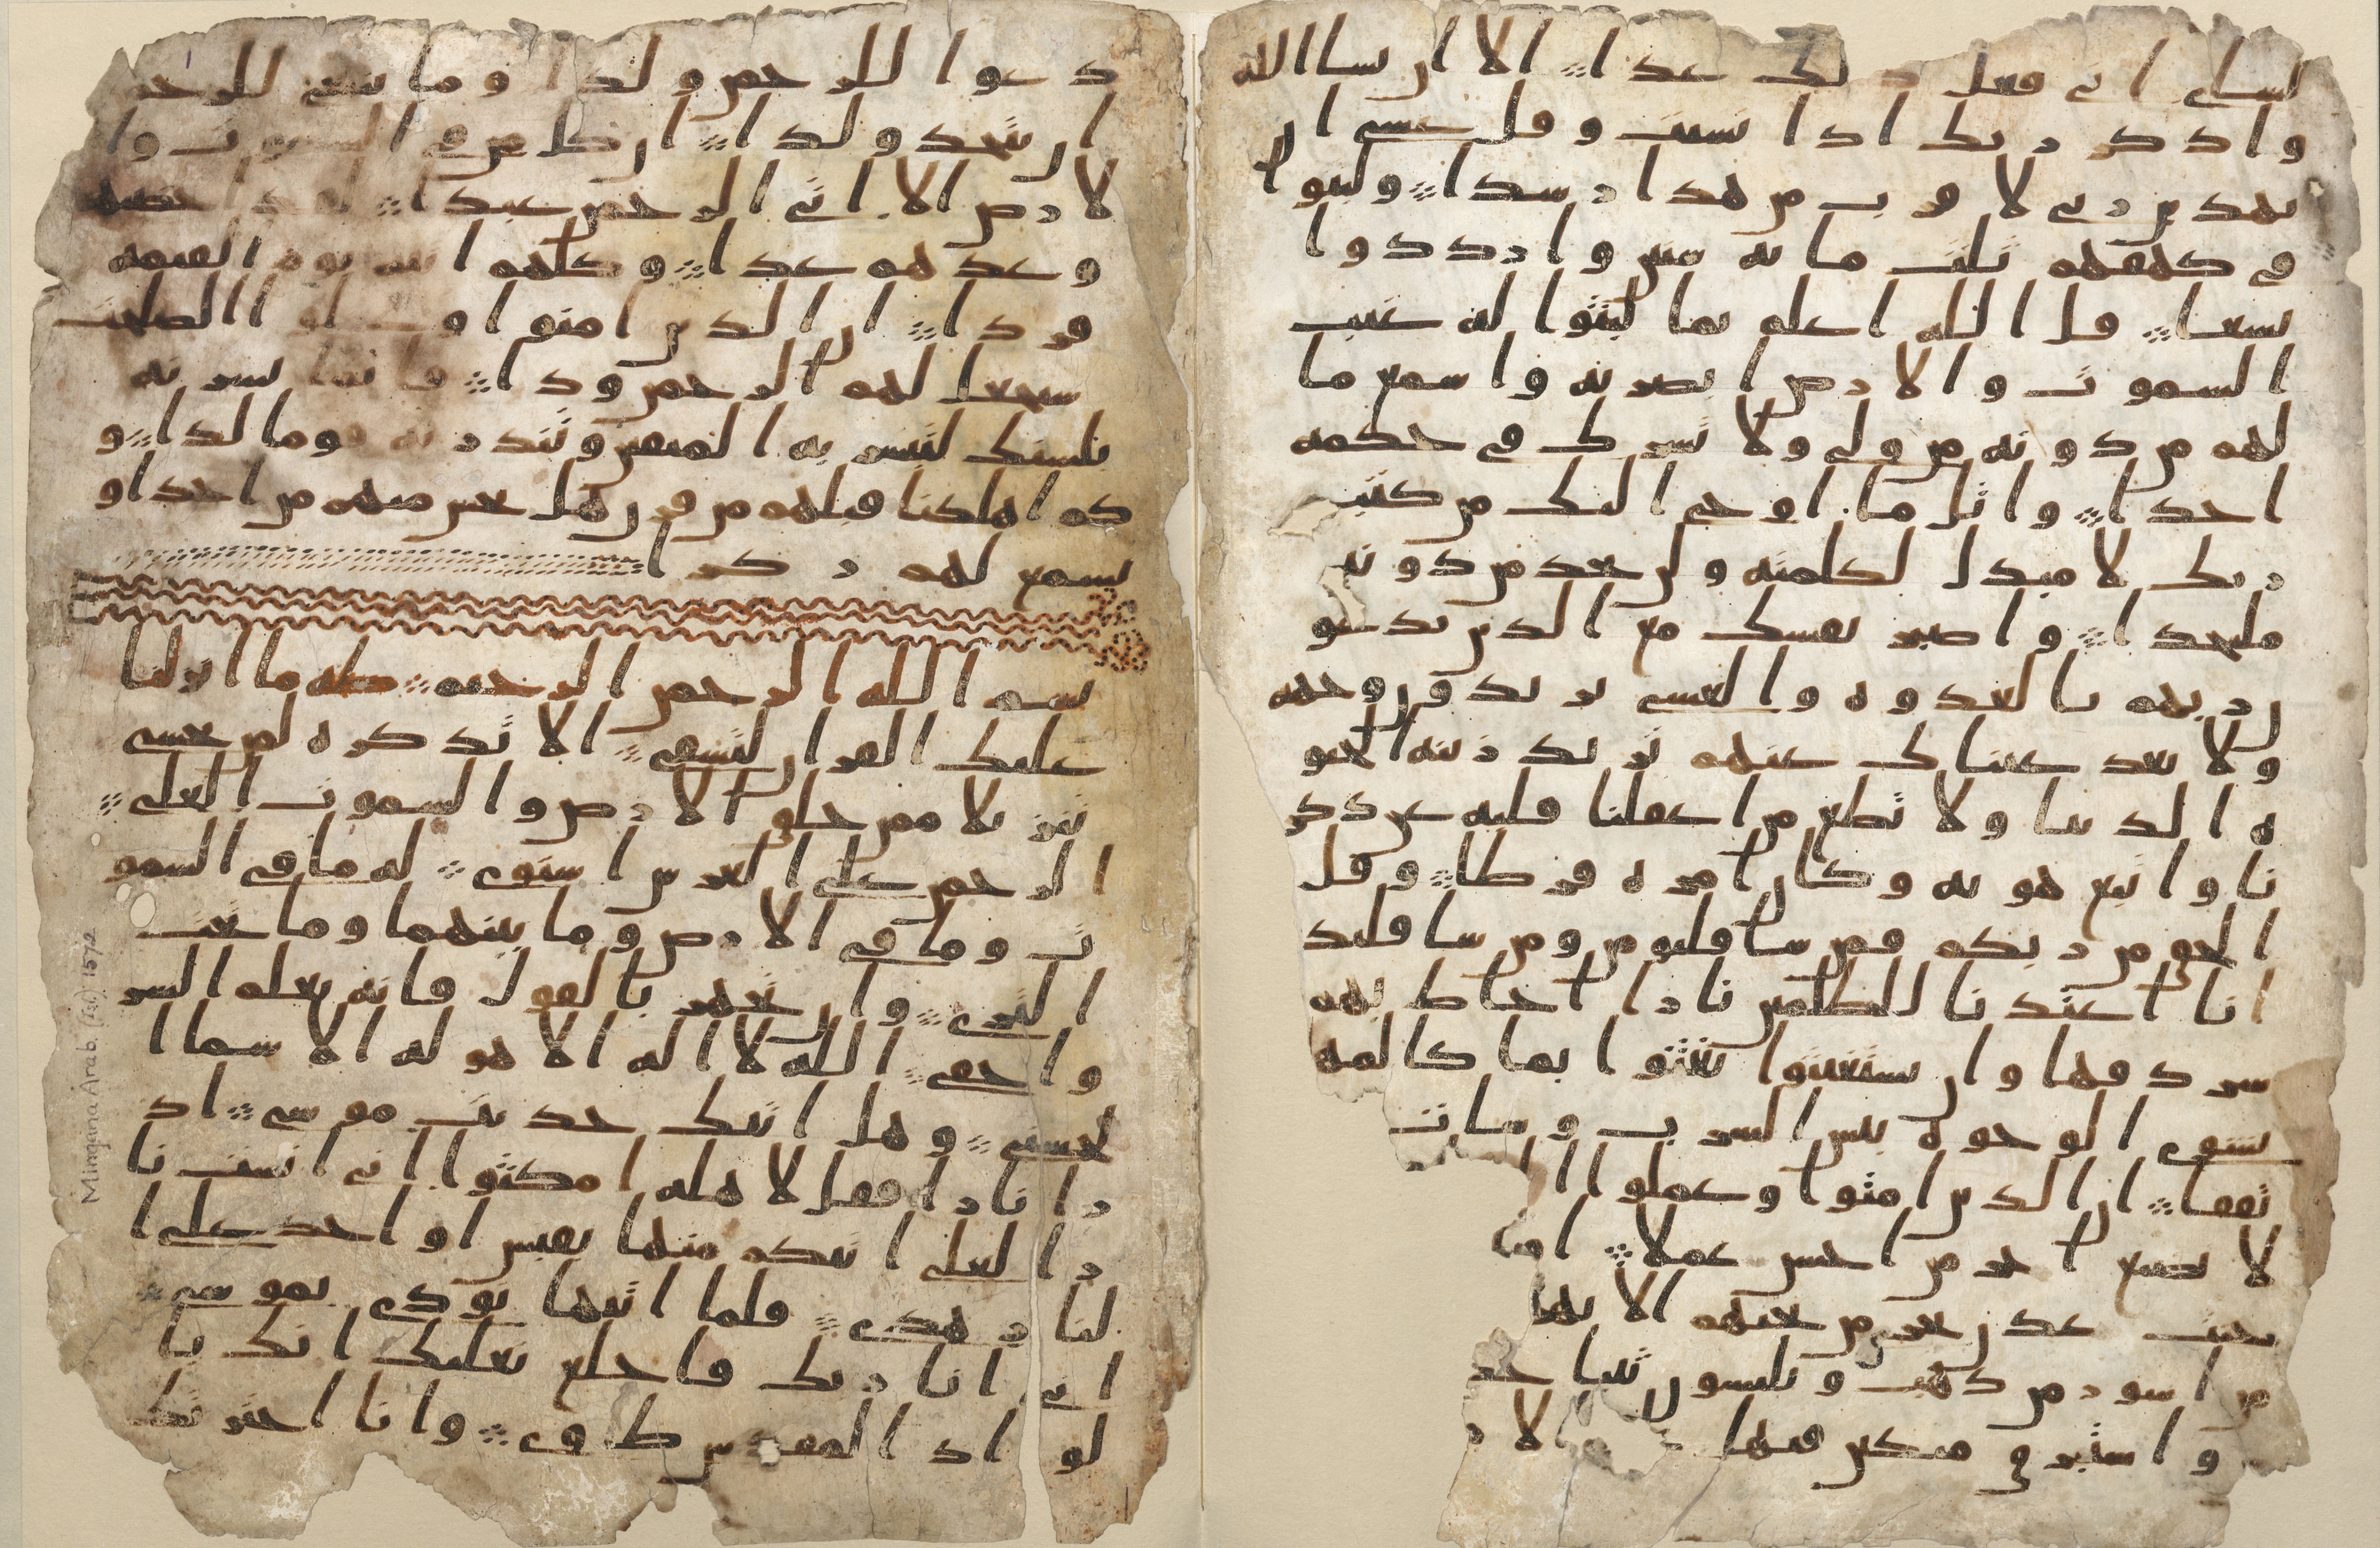 لشاي اني فعل ذلك غدا ۞ الا ان يشا الله
واذكر ربك اذا نسيت وقل عسى ان
يهدين ربي لاقرب من هذا رشدا ۞ ولبثوا
في كهفهم ثلث مايه سنين وازددوا
تسعا ۞ قل الله اعلم بما لبثوا له غيب
السموت والارض ابصر به واسمع ما
لهم من دونه من ولي ولا تشرك في حكمه
احدا ۞ واتل ما اوحي اليك من كتب
ربك لا مبدل لكلمته ولن تجد من دونه
ملتحدا ۞ واصبر نفسك مع الذين يدعو
ن ربهم بالغدوه والعشي يريدون وجهه
ولا تعد عيناك عنهم تريد زينه الحيو
ه الدنيا ولا تطع من اغفلنا قلبه عن ذكر
نا واتبع هويه وكان امره فرطا ۞ وقل
الحق من ربكم فمن شا فليومن ومن شا فليكـ
انا اعتدنا للظلمين نارا احاط بهم
سردقها وان يستغيثوا يغثوا بما كالمه
يشوي الوجوه بيس الشرب وسات
تفقا ۞ ان الذين امنوا وعملوا ا
لا نضيع اجر من احسن عملا ۞ او
جنت عدن تجري من تحتهم الانها
من اسور من ذهب ويلبسون ثيبا خـ
واستبرق متكين فيها الار
دعوا للرحمن ولدا وما ينبغي للرحمـ
ان يتخذ ولدا ۞ ان كل من في السموت وا
لارض الا اتي الرحمن عبدا ۞ لقد احصيهم
وعدهم عدا ۞ وكلهم اتيه يوم القيمه
فردا ۞ ان الذين امنوا وعملوا الصلحت
سيجعل لهم الرحمن ودا ۞ فانما يسرنه
بلسنك لتبشر به المتقين وتنذر به قوما لدا ۞ و
كم اهلكنا قبلهم من قرن هل تحس منهم من احد او
تسمع لهم ركزا
بسم الله الرحمن الرحيم ۞ طه ما انزلنا
عليك القران لتشقى ۞ الا تذكره لمن يخشى
تنزيلا ممن خلق الارض والسموت العلى ۞
الرحمن على العرش استوى ۞ له ما في السمو
ت وما في الارض وما بينهما وما تحت
الثرى ۞ وان تجهر بالقول فانه يعلم السر
واخفى ۞ الله لا اله الا هو له الاسما ا
لحسنى ۞ وهل اتيك حديث موسى ۞ اذ
را نارا فقل لاهله امكثوا اني انست نا
را لعلي اتيكم منها بقبس او اجد على ا
لنار هدى ۞ فلما اتيها نودي يموسى ۞
اني انا ربك فاخلع نعليك انك با
لواد المقدس طوى ۞ وانا اخترتك
Mingana Arab. (Isl) 1572